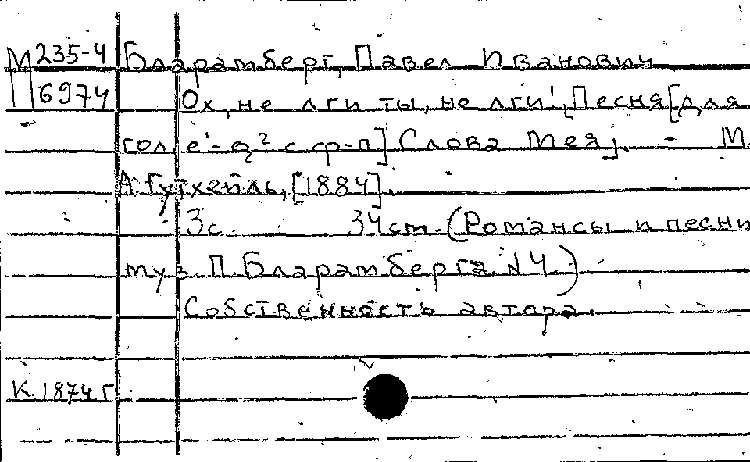 М 235-4 Бларамберг, Павел Иванович
П 6974 Ох, не лги ты, не лги!, Песня [для
гол. e'-g² с ф-п] Слова Мея]. - М.
А. Гутхейль, [1884].
3с. 34см. (Романсы и песни
муз. П. Бларамберга N4)
Собственность автора.
К. 1874 г.